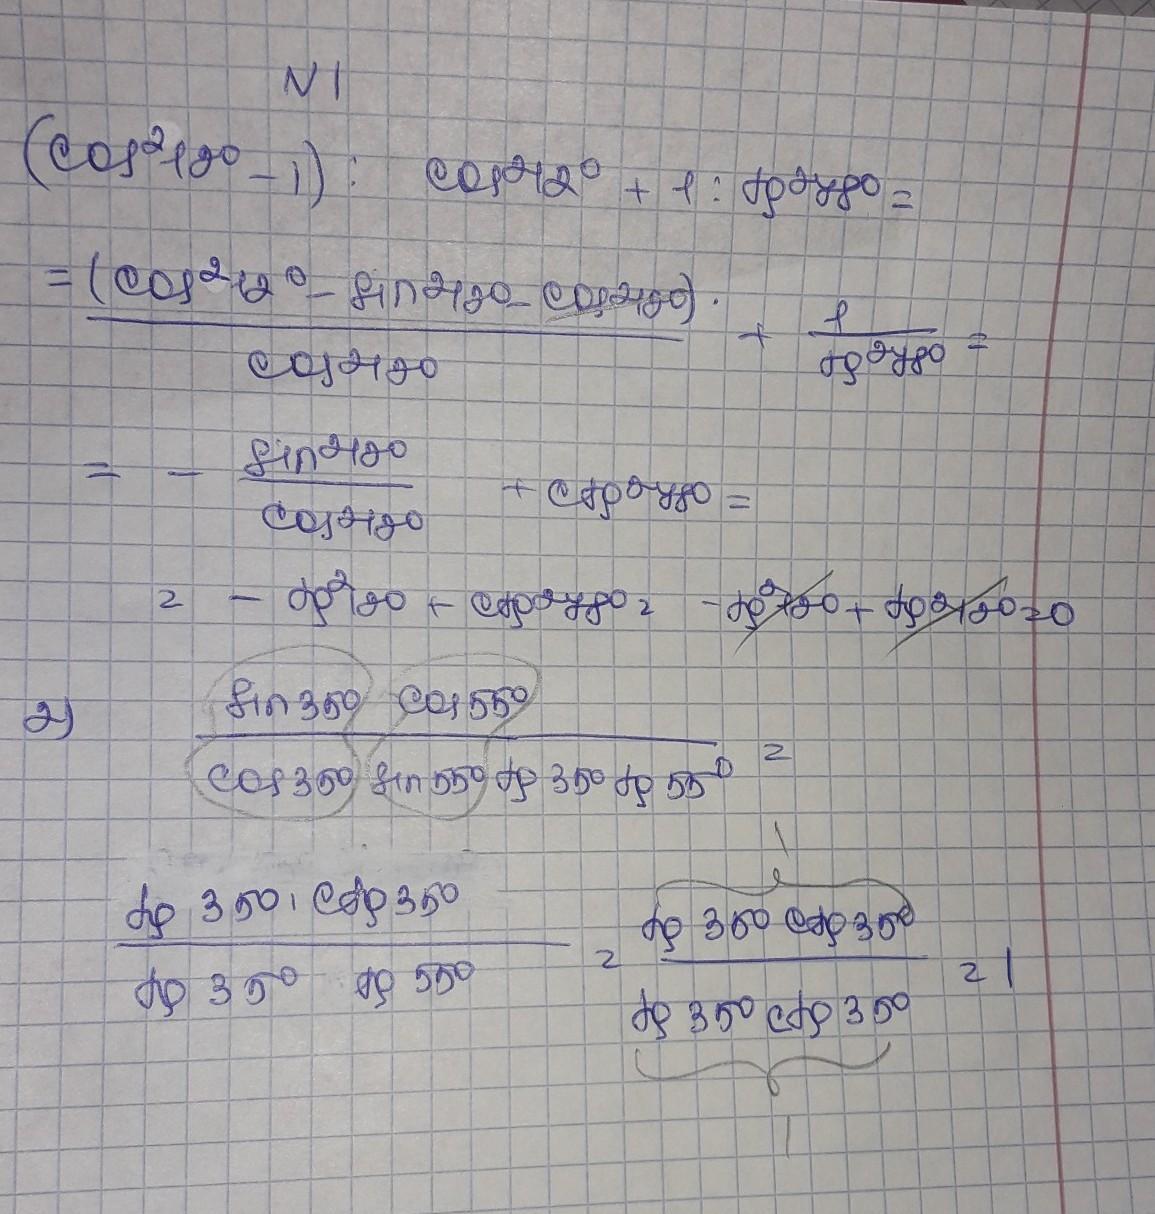 N1
(cos²12° - 1) : cos²12° + 1 : tg²78° =
= (cos²12° - sin²12° - cos²12°) · / cos²12° + 1 / tg²78° =
= - sin²12° / cos²12° + ctg²78° =
= - tg²12° + ctg²78° = - tg²12° + tg²12° = 0
2) sin35° cos55° / cos35° sin55° tg35° tg55° =
1
tg35° · ctg35° / tg35° tg55° = tg35° ctg35° / tg35° ctg35° = 1
1